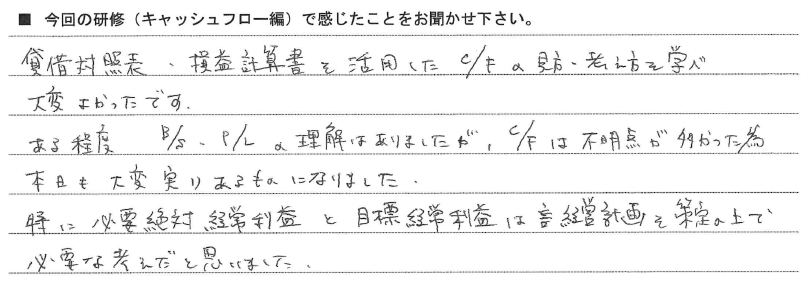 ■ 今回の研修（キャッシュフロー編）で感じたことをお聞かせ下さい。
貸借対照表、損益計算書を活用したC/Fの見方・考え方を学べ
大変よかったです。
ある程度 B/S、P/Lの理解はありましたが、C/Fは不明点が多かった為
本日も大変実りあるものになりました。
特に必要絶対経常利益と目標経常利益は 経営計画を策定の上で
必要な考えだと思いました。